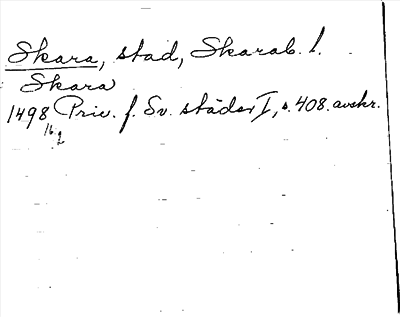 Skara, stad, Skarab. l.
Skara
1498 Priv. f. Sv. städer I, s. 408. avskr.
16/2